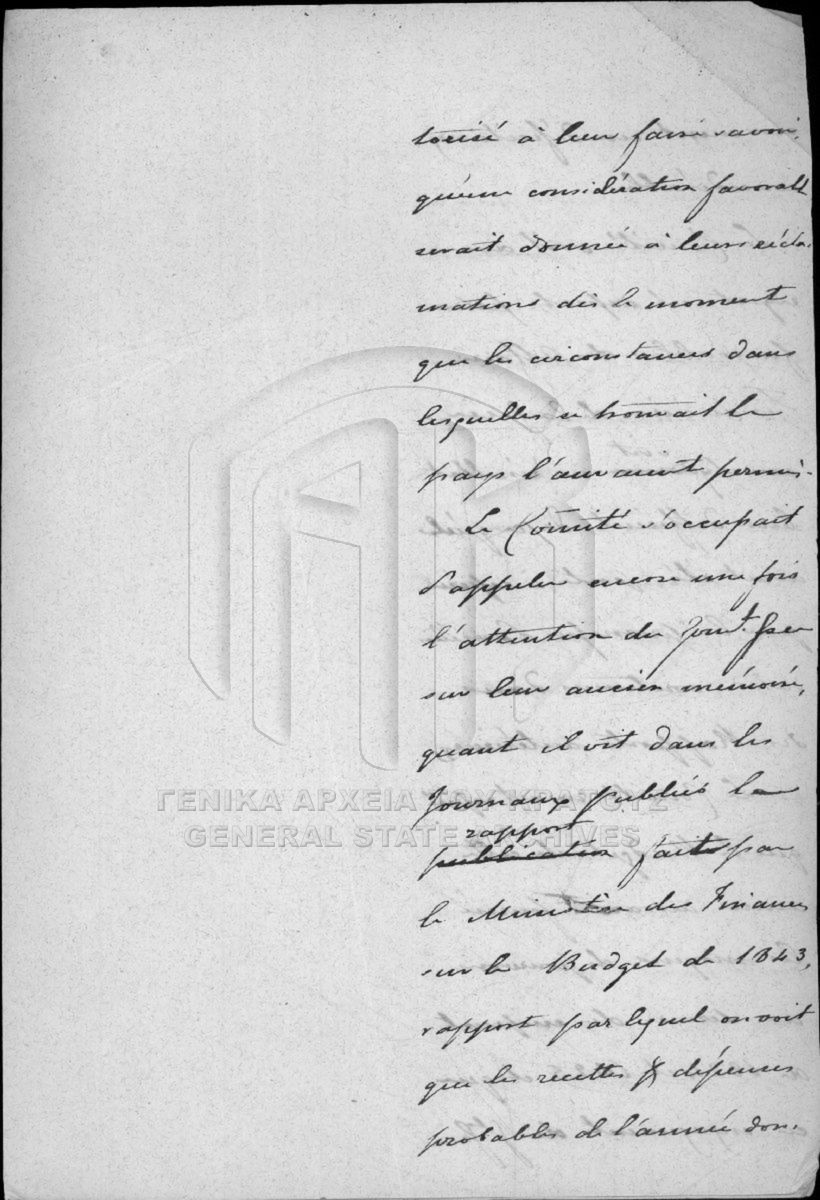 torisé à leur faire savoir,
qu'une considération favorable
serait donnée à leurs récla-
mations dès le moment
que les circonstances dans
lesquelles se trouvait le
pays l'auraient permis.
Le Comité s'occupait
d'appeler encore une fois
l'attention du Gouv.t Grec
sur leur ancien mémoire,
quant il vit dans les
Journaux publiés la
rapport
publication faite par
le Ministère des Finances
sur le Budget de 1843,
rapport par lequel on voit
que les recettes & dépenses
probables de l'année don-
ΓΕΝΙΚΑ ΑΡΧΕΙΑ ΤΟΥ ΚΡΑΤΟΥΣ
GENERAL STATE ARCHIVES